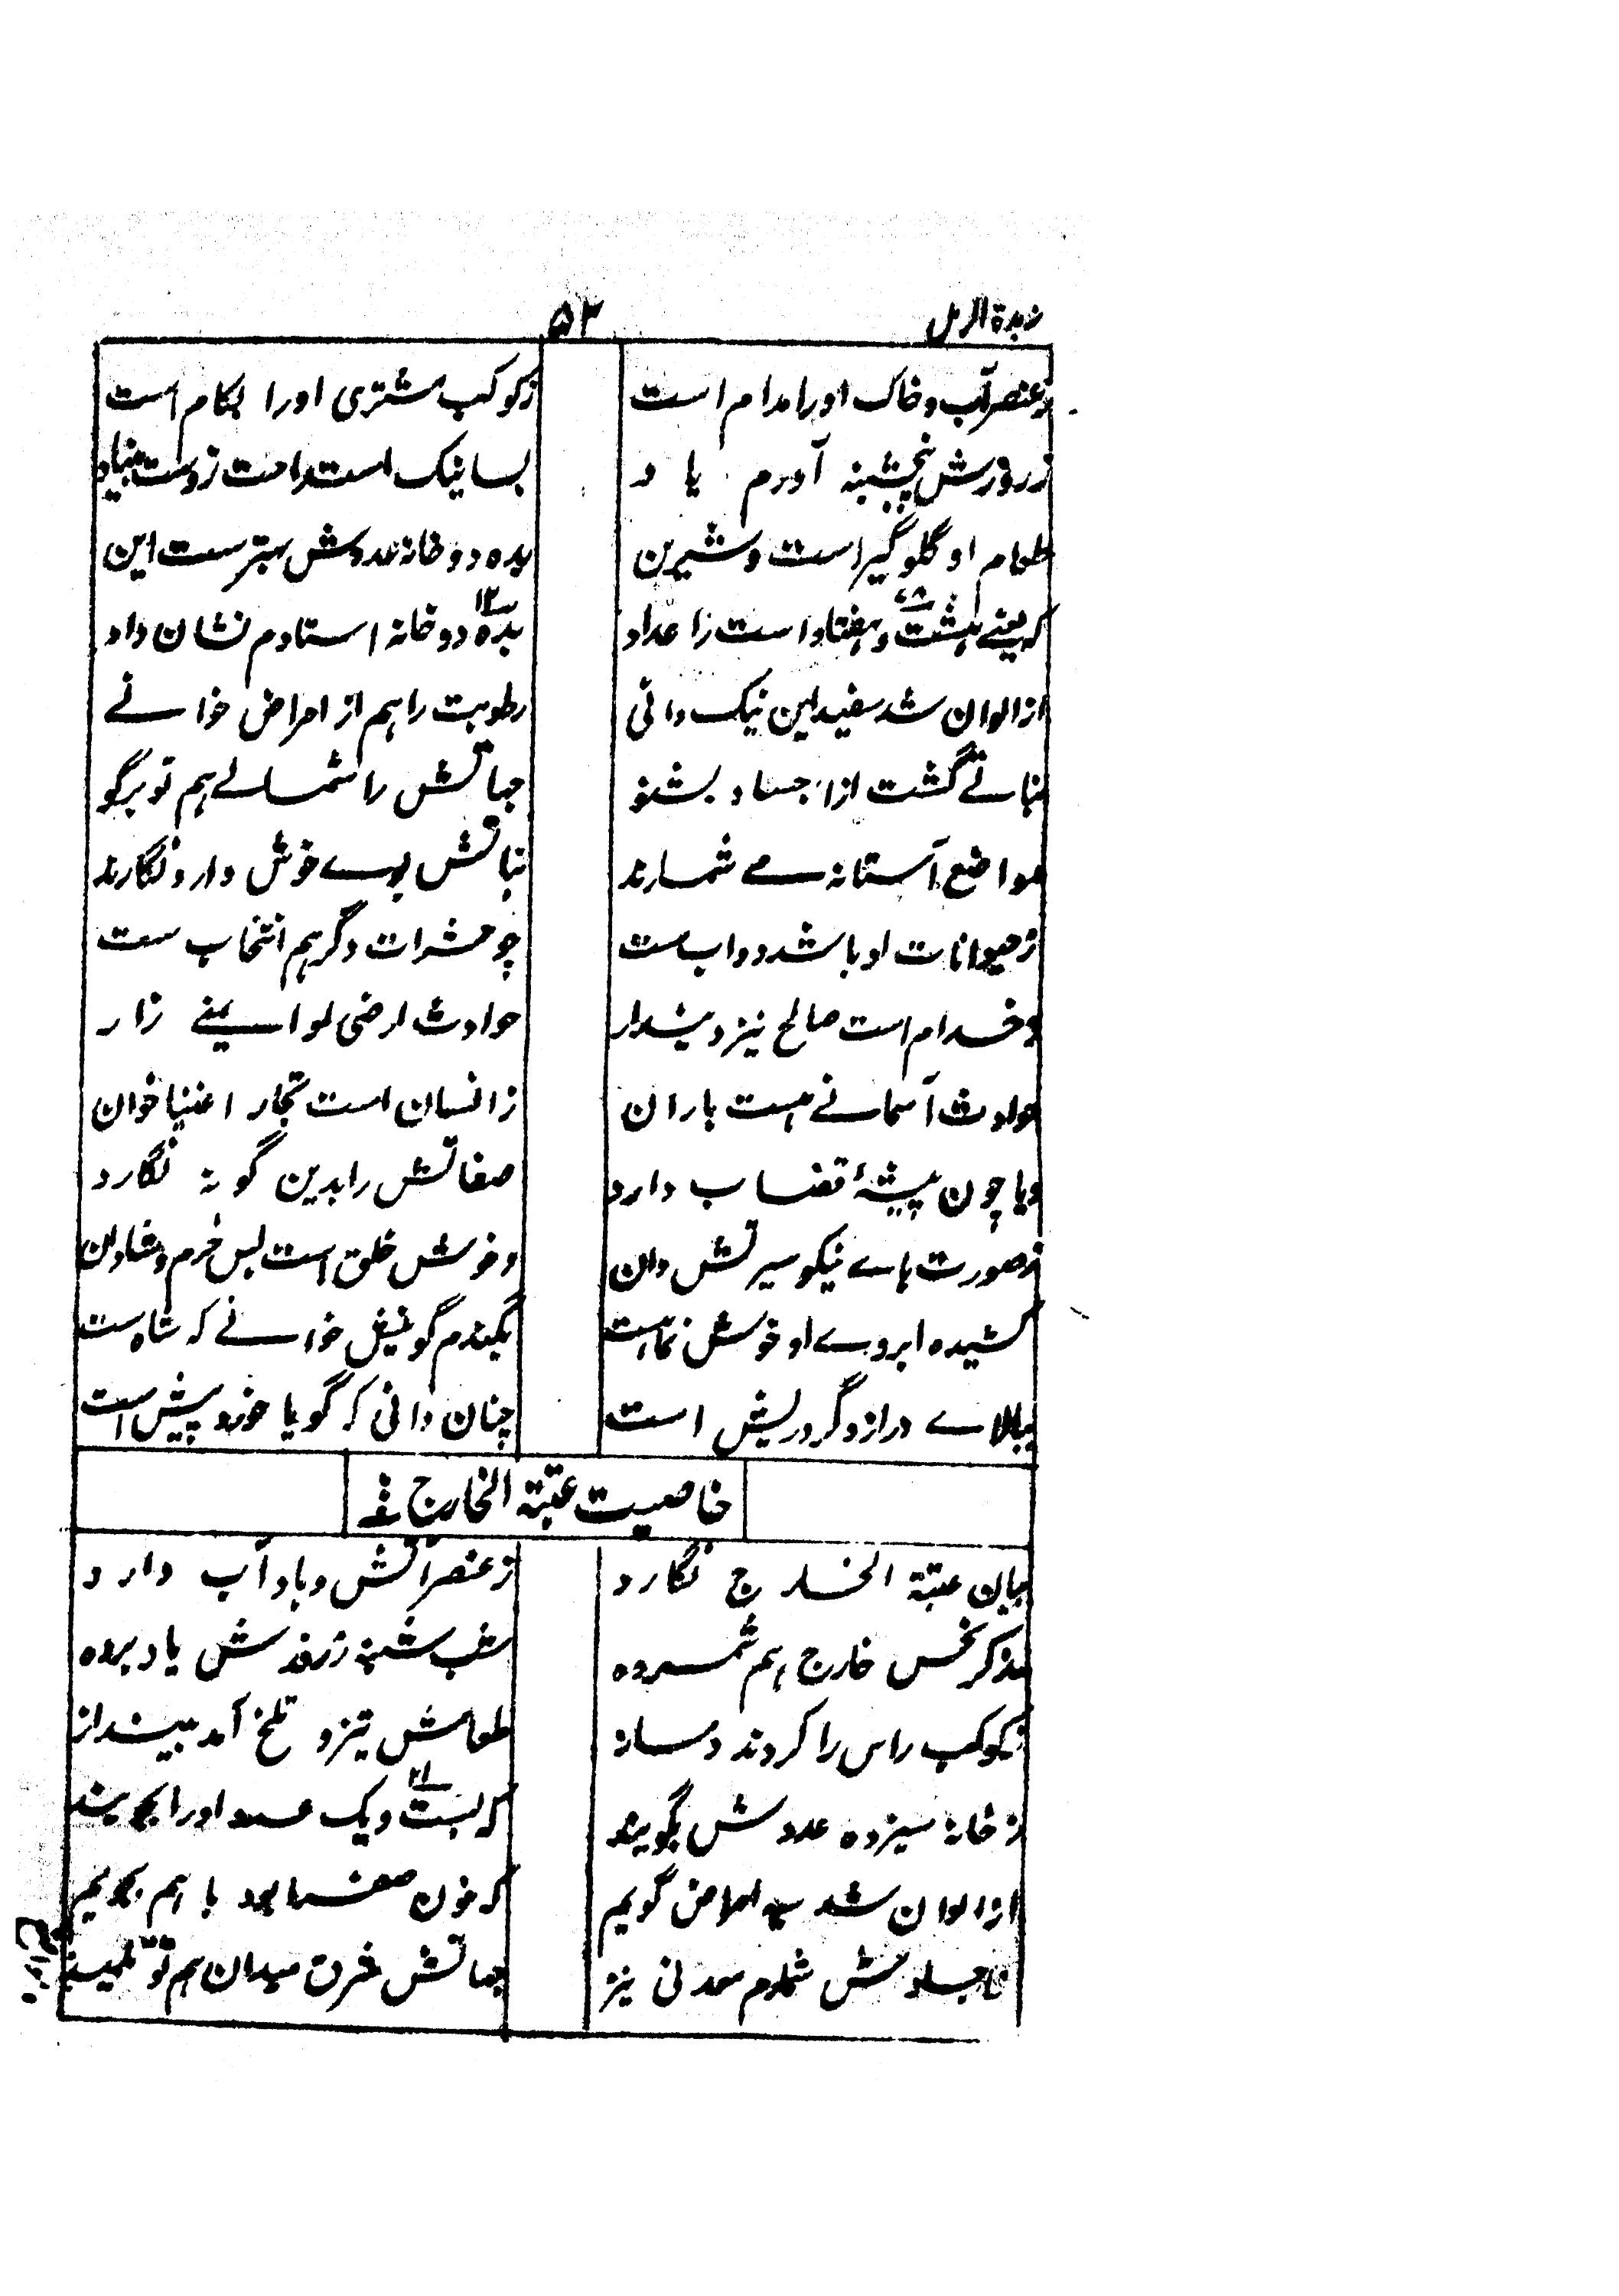 زبدة الرمل ۵۲
زعنصر آب و خاک اورا مدام است زکوکب مشتری اورا بکام است
زروزش پنجشنبه آورم یاد بسا نیک است راست زوست بنیاد
طعام او گلوگیر است و شیرین بده دو خانه عدوش بهترست این
که یعنے ہشت و ہفتاد است ز اعداد ۷۸ بده دو خانه استادم نشان داد ۱۲
از الوان شد سفید این نیک دانی رطوبت را ہم از امراض خوانے
نباتے گشت از اجساد بشنو جہاتش را شمالے ہم تو برگو
مواضع آستانه مے شمارند نباتش بوے خوش دارد نگارند
زحیوانات او باشد دواب ست چو حشرات دگر ہم انتخاب ست
و خدام است صالح نیز دیندار حوادث ارضی لو ا یعنے زار
حوادث آسمانے ہست باران ز انسان است تجار اغنیا خوان
و یا چون پیشهٔ قصاب دارد صفاتش را بدین گونه نگارد
ز صورت ہاے نیکو سیرتش دان و خوش خلق است بس خرم و شادان
کشیده ابروے او خوش نماست بگندم گو خوانے که شاه ست
ببالاے دراز و گرد ریش است چنان دانی که گویا خود پیش است
خاصیت عتبة الخارج
بیان عتبة الخارج نگارد ز عنصر آتش و باد آب دارد
مذکر نحس خارج ہم شمرده شب شنبه ز روزش یاد برده
زکوکب راس را کردند دمساز طعامش تیز و تلخ آمد بینداز
ز خانۀ سیزده عددش بگویند که بست و یک عدد اورا بجویند ۲۱
از الوان شد سیه امراض گویم که خون صفرا بود با ہم بجویم
ز اجسادش شمارم معدنی نیز جہاتش شرق میدان ہم تو تمییز